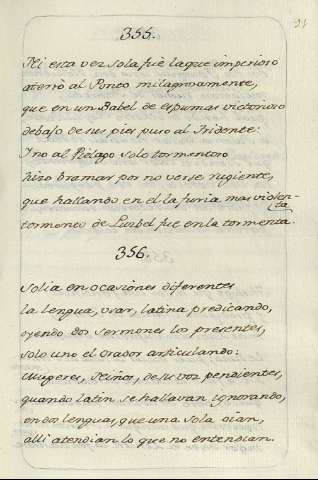 91
355.
Ni esta vez sola fuè la que imperioso
aterrò al Ponto milagrosamente,
que en un Babel de espumas victorioso
debajo de sus pies puso al Tridente:
Y no al Piélago solo tormentoso
hizo bramar por no verse rugiente,
que hallando en el la furia mas violenta
tormento de Luzbel fue en la tormenta.
356.
Solia en ocasiones diferentes
la lengua, usar, latina predicando,
oyendo dos sermones los presentes,
solo uno el orador articulando:
Mugeres, Niños, de su voz pendientes,
quando latin se hallavan ignorando,
en dos lenguas, que una sola oìan,
alli atendian lo que no entendian.